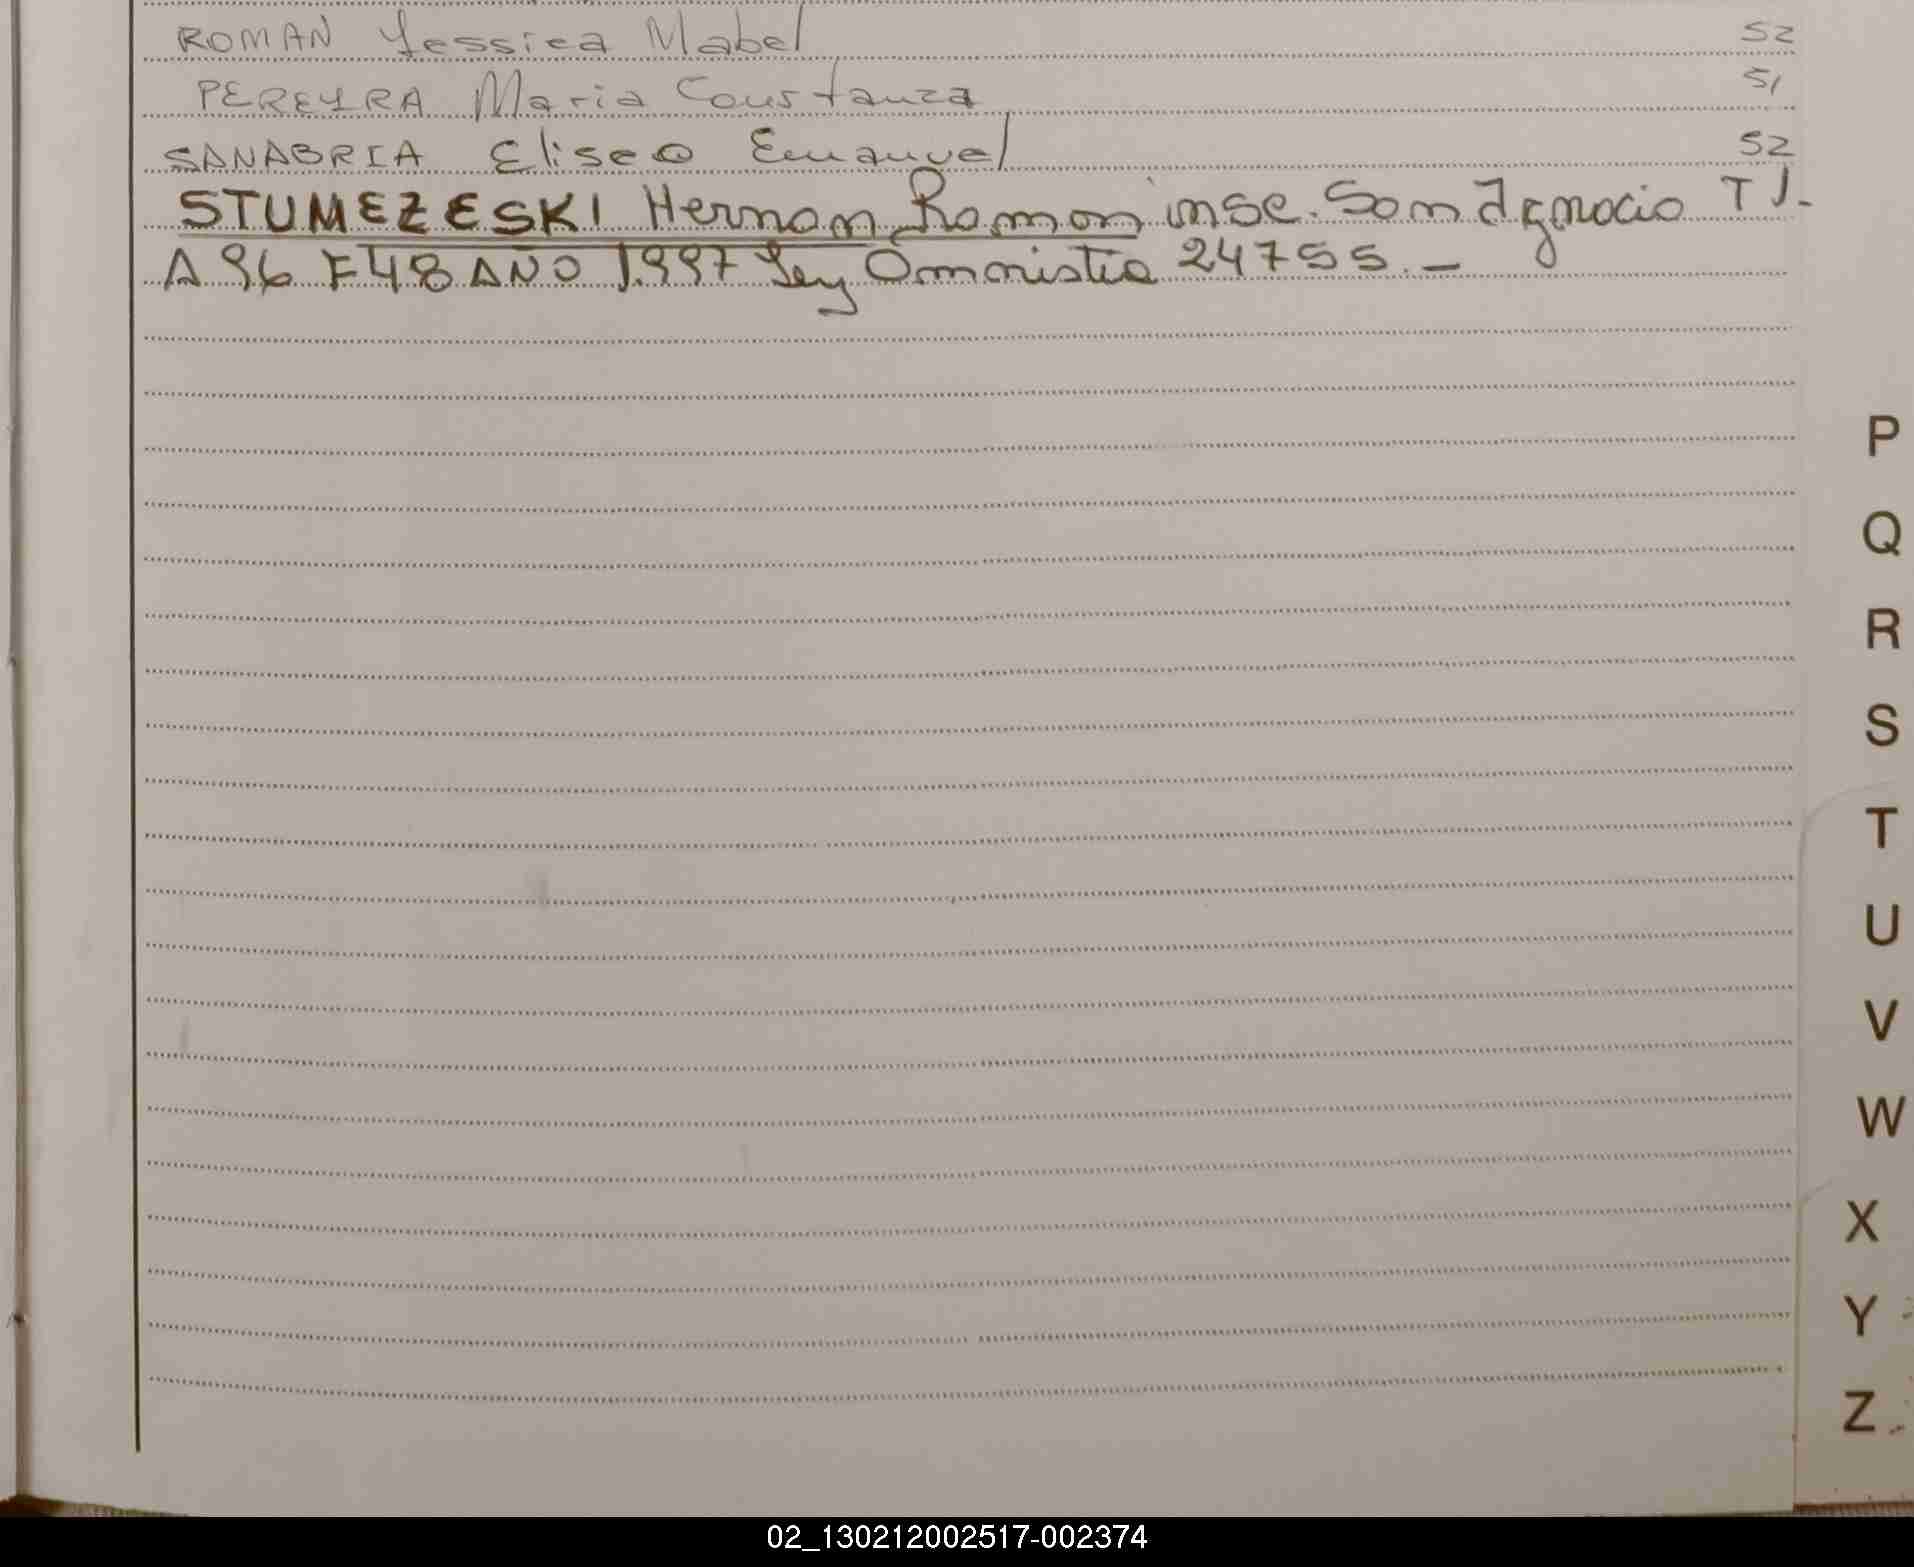 ROMAN Yessica Mabel 52
PEREYRA Maria Constanza 51
SANABRIA Eliseo Emanuel 52
STUMEZESKI Hernan Ramon insc. San Ignacio T 1.
A 96 F 48 AÑO 1.997 Ley Amnistia 24755. _
P
Q
R
S
T
U
V
W
X
Y
Z
02_130212002517-002374